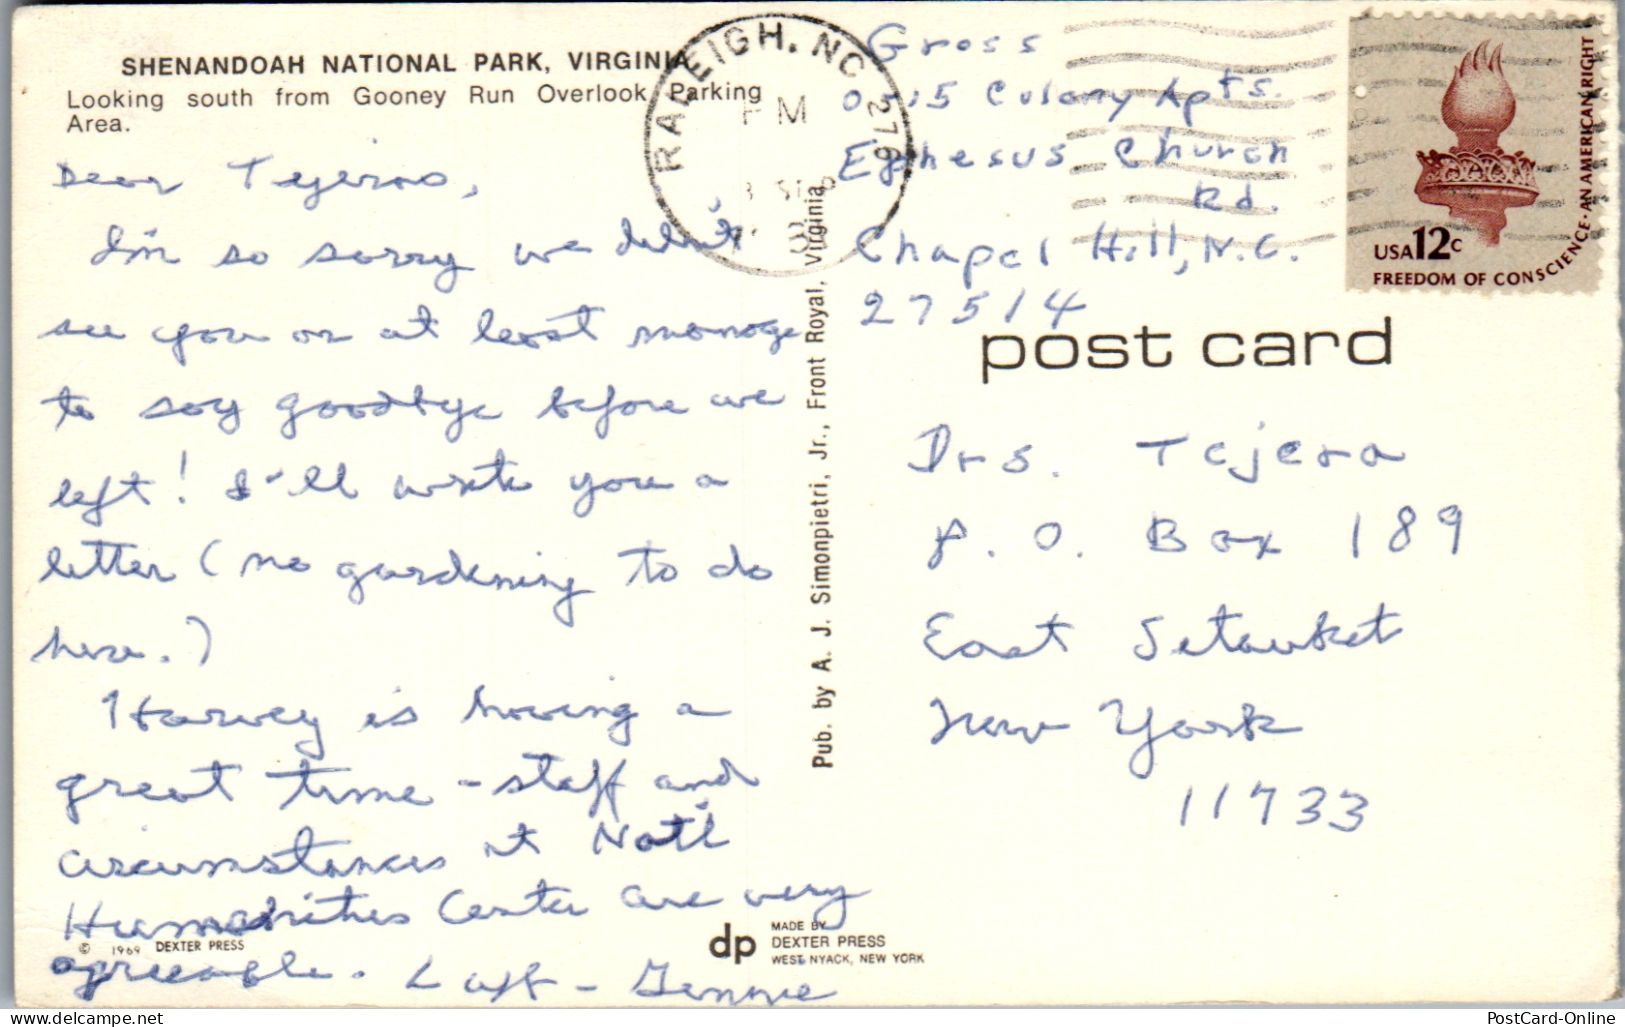 SHENANDOAH NATIONAL PARK, VIRGINIA
Looking south from Gooney Run Overlook Parking
Area.
Dear Tejeras,
I'm so sorry we didn't
see you or at least manage
to say goodbye before we
left! I'll write you a
letter (no gardening to do
here.)
Harvey is having a
great time - staff and
circumstances at Nat'l
Humanities Center are very
agreeable. Luff - Gennie
© 1969 DEXTER PRESS
Pub. by A. J. Simonpietri, Jr., Front Royal, Virginia
dp
MADE BY
DEXTER PRESS
WEST NYACK, NEW YORK
RALEIGH. NC 276
PM
Gross
Colony Apts.
Ephesus Church
Rd.
Chapel Hill, N.C.
27514
USA 12c
FREEDOM OF CONSCIENCE·AN AMERICAN RIGHT
post card
Drs. Tejera
P.O. Box 189
East Setauket
New York
11733
delcampe.net
PostCard-Online